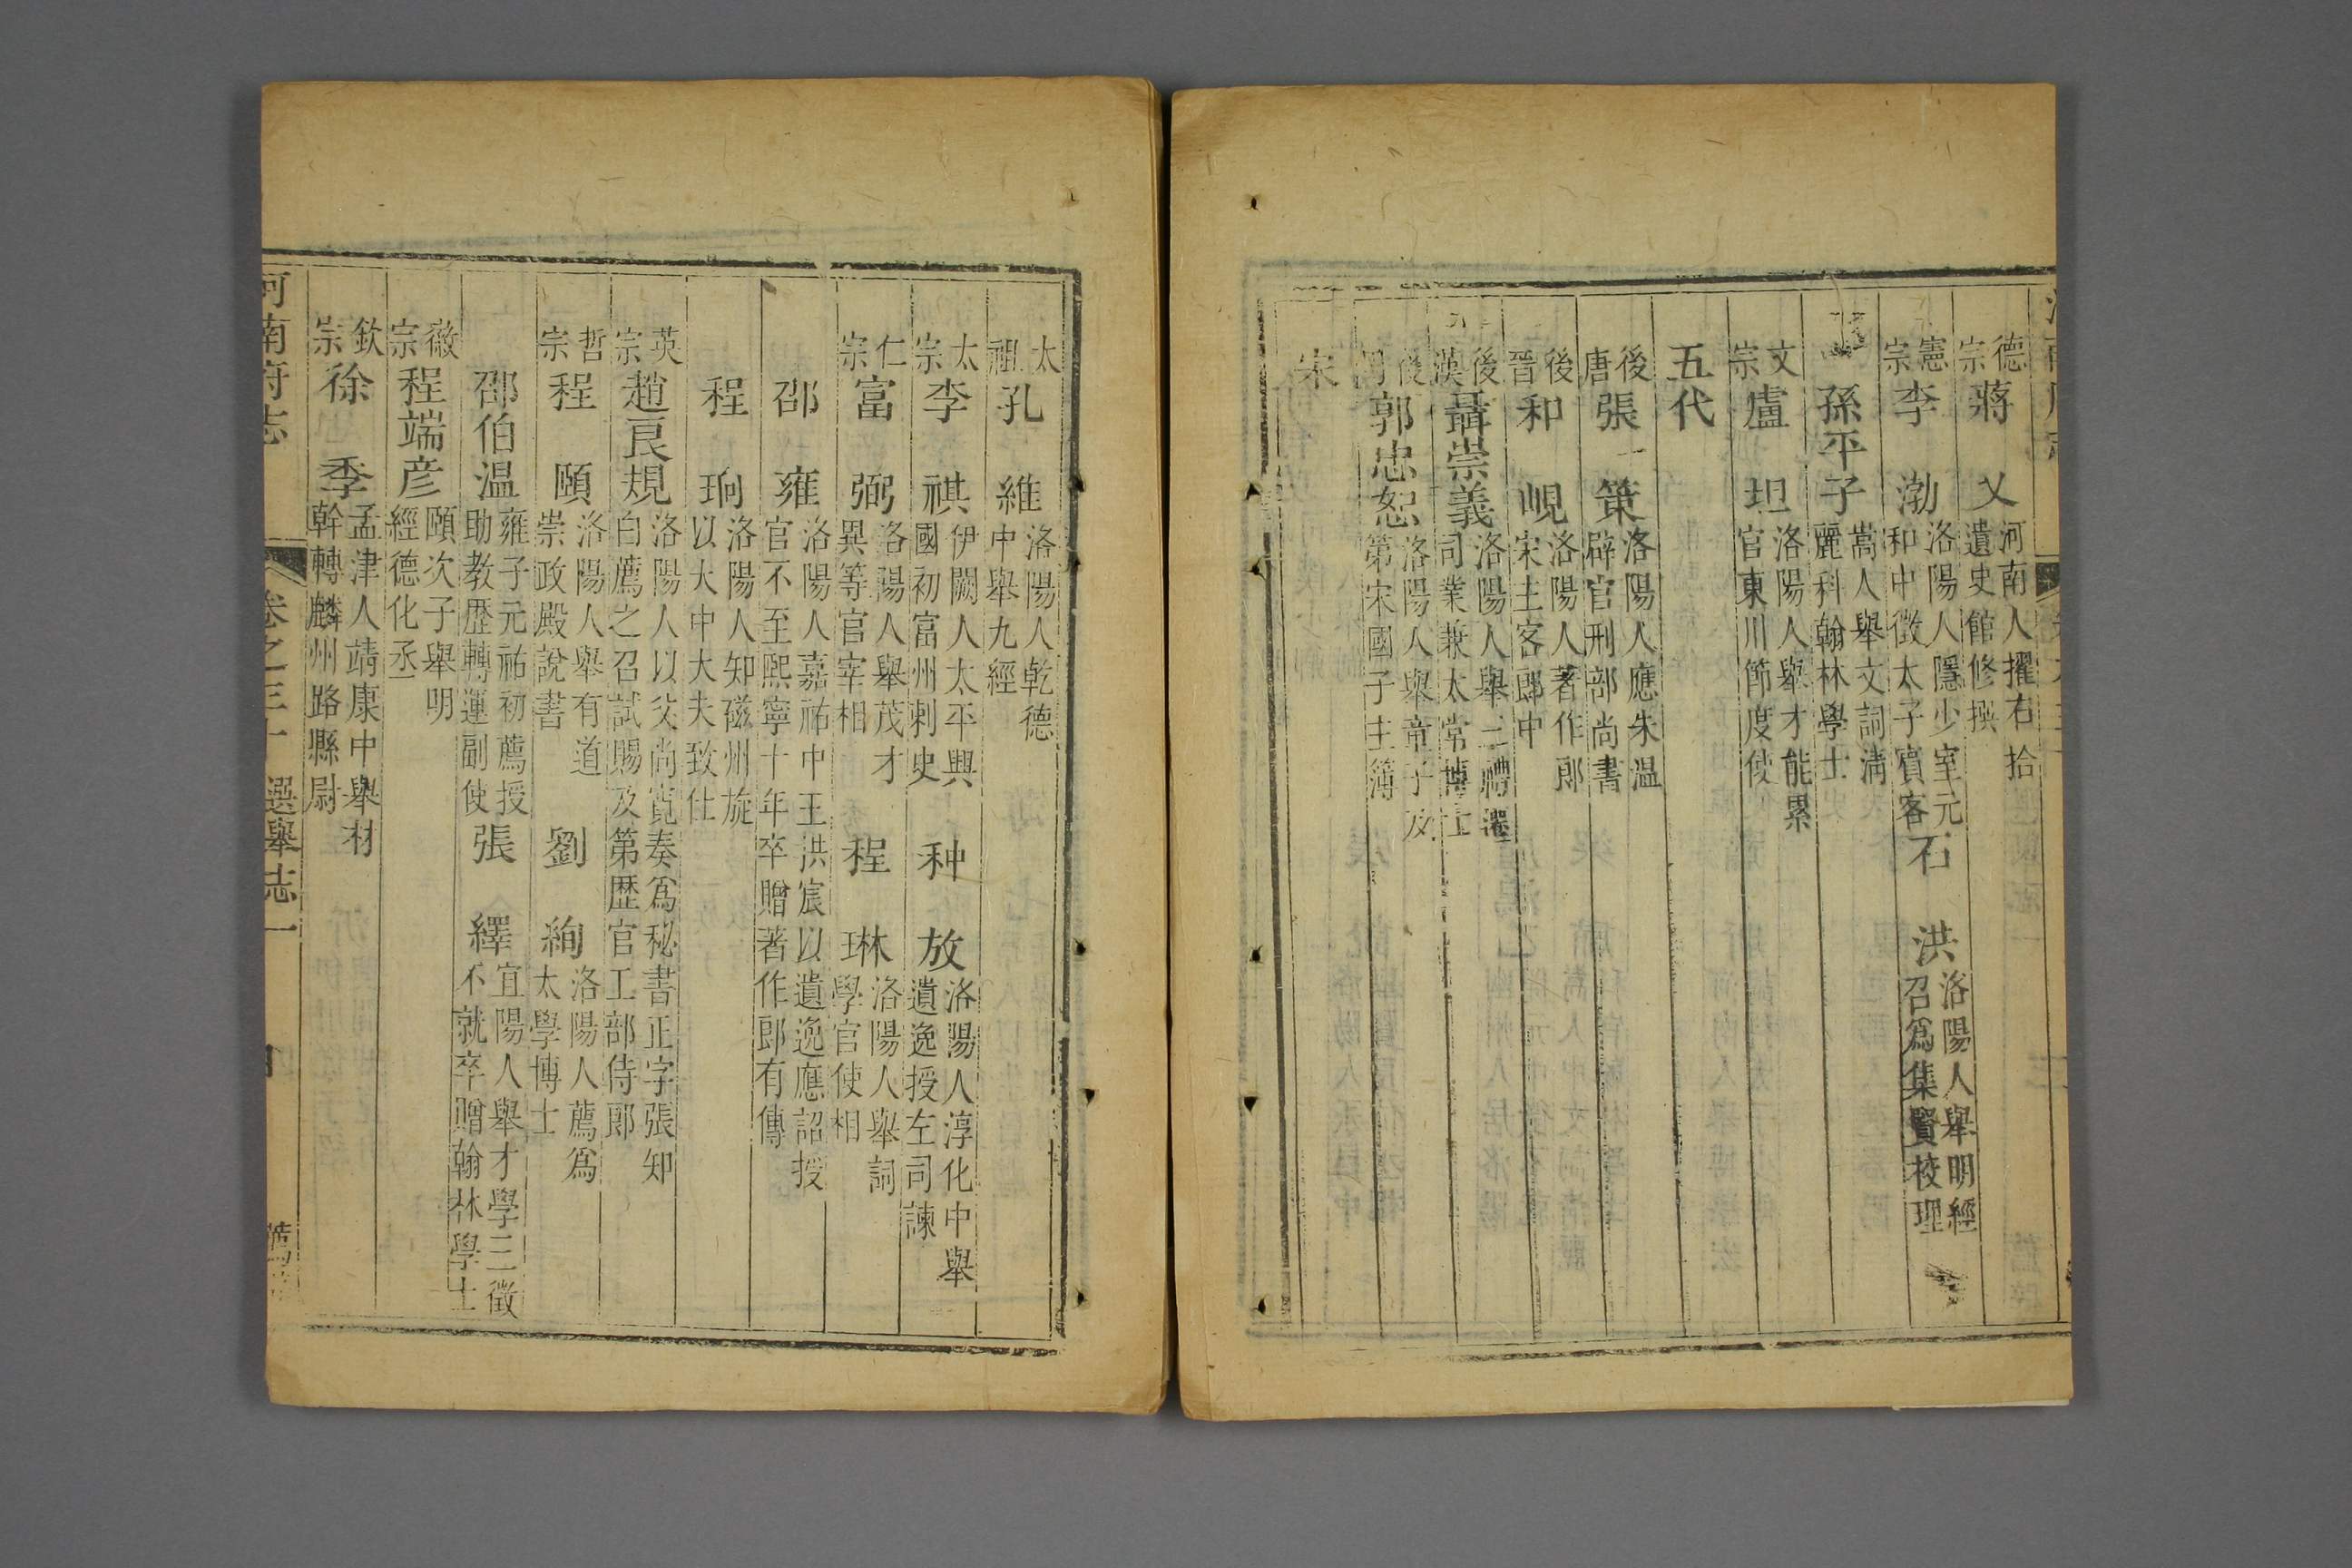 德宗 蔣 乂 河南人擢右拾遺史館修撰
憲宗 李 渤 洛陽人隱少室元和中徵太子賓客 石 洪 洛陽人舉明經召爲集賢校理
孫平子 嵩人舉文詞淸麗科翰林學士
文宗 盧 坦 洛陽人舉才能累官東川節度使
五代
後唐 張 策 洛陽人應朱温辟官刑部尚書
後晉 和 峴 洛陽人著作郎宋主客郎中
後漢 聶崇義 洛陽人舉三禮遷司業兼太常博士
後周 郭忠恕 洛陽人舉童子及第宋國子主簿
宋
太祖 孔 維 洛陽人乾德中舉九經
太宗 李 祺 伊闕人太平興國初富州刺史 种 放 洛陽人淳化中舉遺逸授左司諫
仁宗 富 弼 洛陽人舉茂才異等官宰相 程 琳 洛陽人舉詞學官使相
邵 雍 洛陽人嘉祐中王洪宸以遺逸應詔授官不至熙寧十年卒贈著作郎有傳
程 珦 洛陽人知磁州旋以大中大夫致仕
英宗 趙良規 洛陽人以父尚寬奏爲秘書正字張知白薦之召試賜及第歴官工部侍郎
哲宗 程 頤 洛陽人舉有道崇政殿說書 劉 絢 洛陽人薦爲太學博士
邵伯温 雍子元祐初薦授助教歴轉運副使 張 繹 宜陽人舉才學三徵不就卒贈翰林學士
徽宗 程端彦 頤次子舉明經德化丞
欽宗 徐 季 孟津人靖康中舉材幹轉麟州路縣尉
河南府志 卷之三十 選舉志一